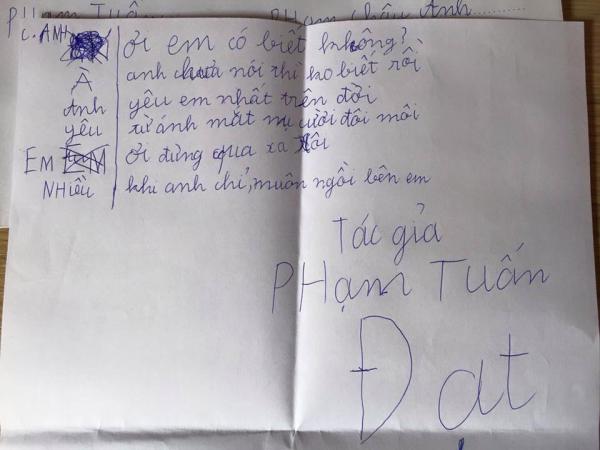 Phạm Tuấn Phạm Châu Anh
C. ANH ơi em có biết không?
À anh chưa nói thì ko biết rồi
Anh yêu em nhất trên đời
yêu từ ánh mắt nụ cười đôi môi
EM ơi đừng qua xa xôi
NHiều khi anh chỉ, muôn ngồi bên em
Tác giả
PHạm TUấn
Đạt